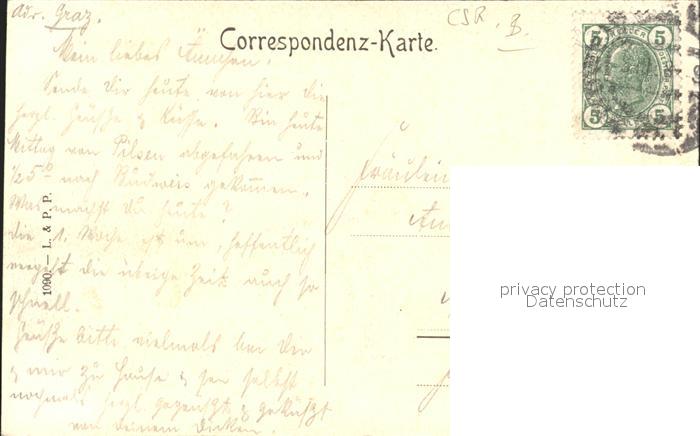 Adr. Graz.
CSR. B.
Correspondenz-Karte.
5 5
5 5
Mein liebes Ännchen.
Sende Dir heute von hier die
herzl. Grüße & Küsse. Bin heute
Mittag von Pilsen abgefahren und
1/2 5 h nach Budweis gekommen.
Was machst Du heute?
Die 1. Woche ist um, hoffentlich
vergeht die übrige Zeit auch so
schnell.
Grüße bitte vielmals bei Dir
& mir zu Hause & sei selbst
nochmals herzl. gegrüßt & geküßt
von deinem Dicken.
1090. — L. & P. P.
Fräulein
privacy protection
Datenschutz